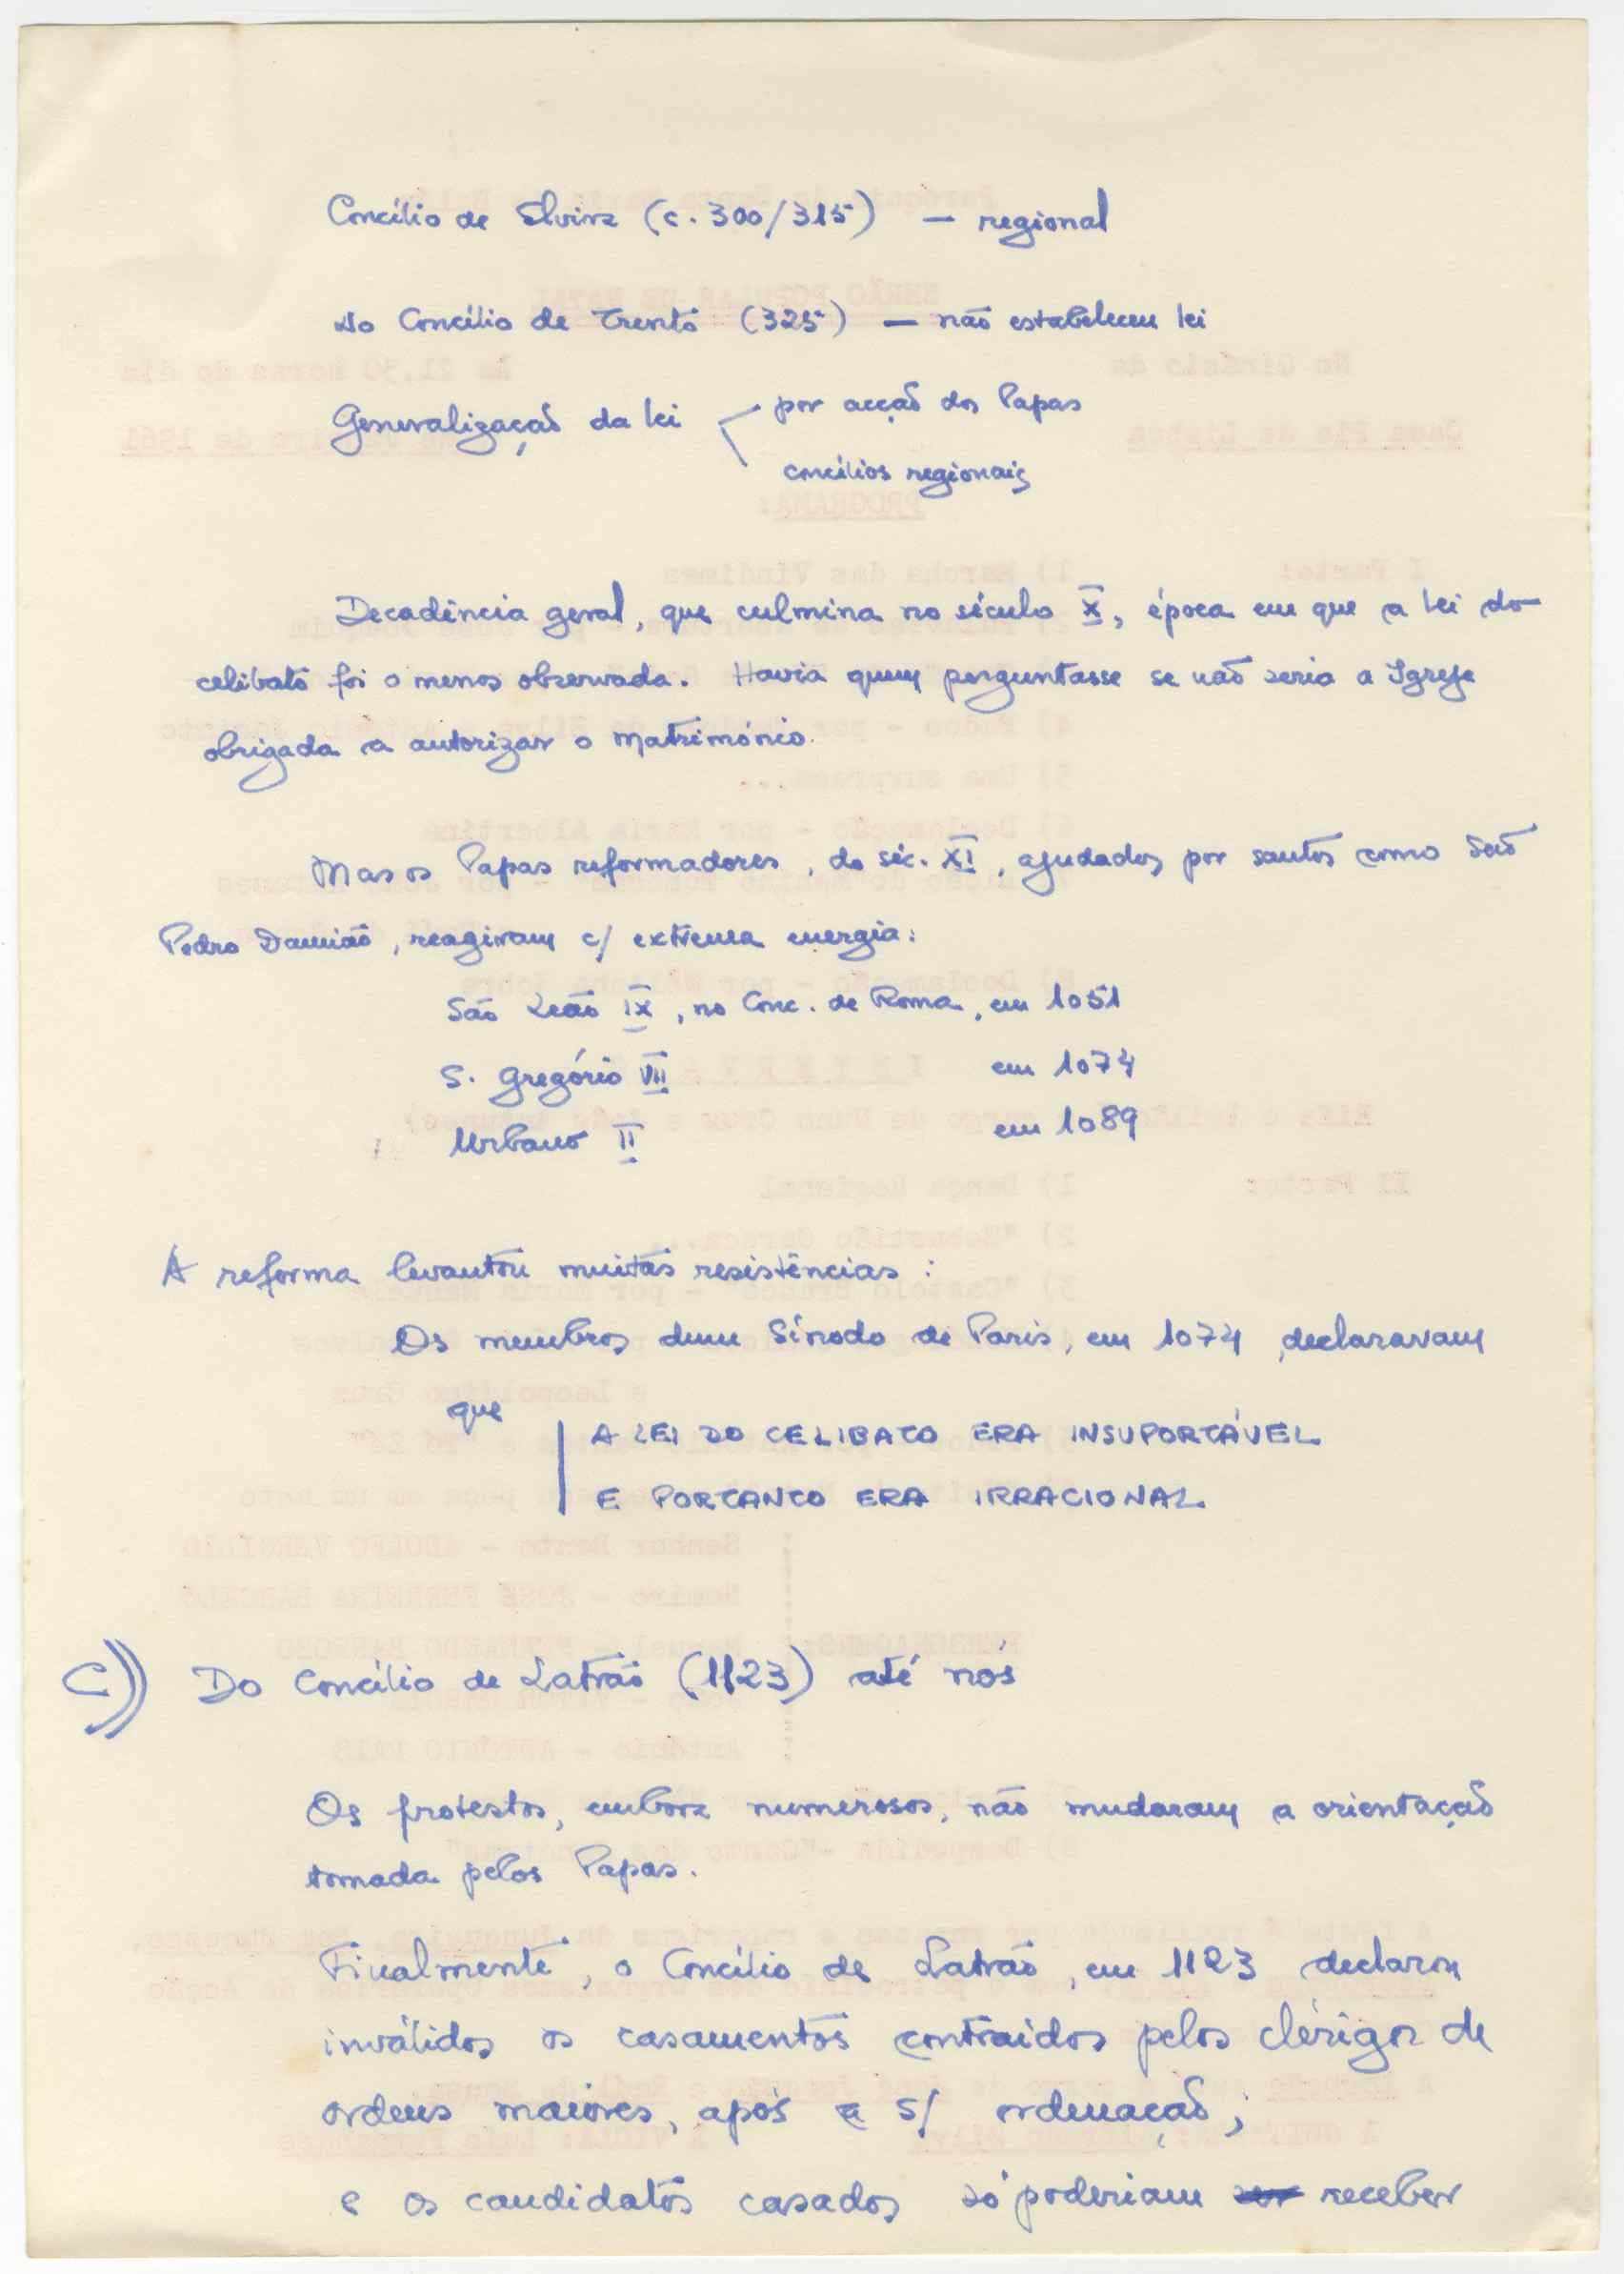 Concílio de Elvira (c. 300/315) — regional
No Concílio de Trento (325) — não estabeleceu lei
Generalização da lei
por acção dos Papas
concílios regionais
Decadência geral, que culmina no século X, época em que a lei do
celibato foi o menos observada. Havia quem perguntasse se não seria a Igreja
obrigada a autorizar o matrimónio.
Mas os Papas reformadores, do séc. XI, ajudados por santos como São
Pedro Damião, reagiram c/ extrema energia:
São Leão IX, no Conc. de Roma, em 1051
S. Gregório VII em 1074
Urbano II em 1089
A reforma levantou muitas resistências:
Os membros dum Sínodo de Paris, em 1074, declaravam
que
A LEI DO CELIBATO ERA INSUPORTÁVEL
E PORTANTO ERA IRRACIONAL
C) Do Concílio de Latrão (1123) até nós
Os protestos, embora numerosos, não mudaram a orientação
tomada pelos Papas.
Finalmente, o Concílio de Latrão, em 1123 declarou
inválidos os casamentos contraídos pelos clérigos de
ordens maiores, após a s/ ordenação;
e os candidatos casados só poderiam receber